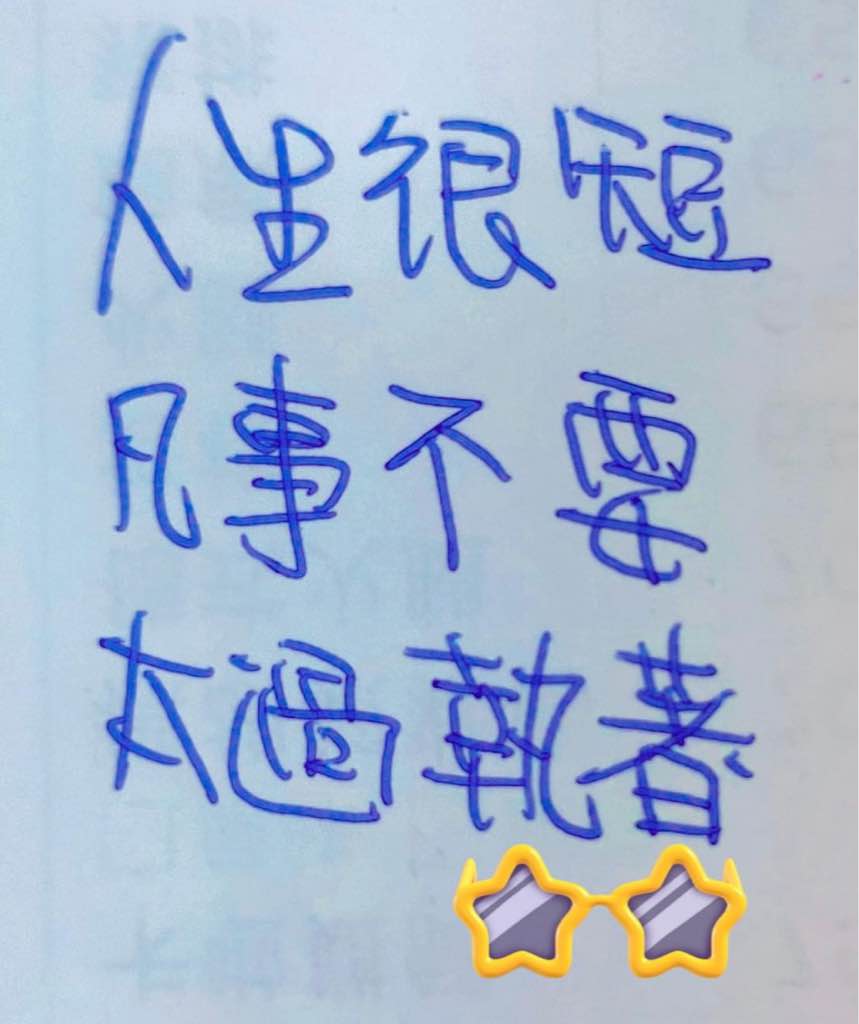 人生很短
凡事不要
太過執著